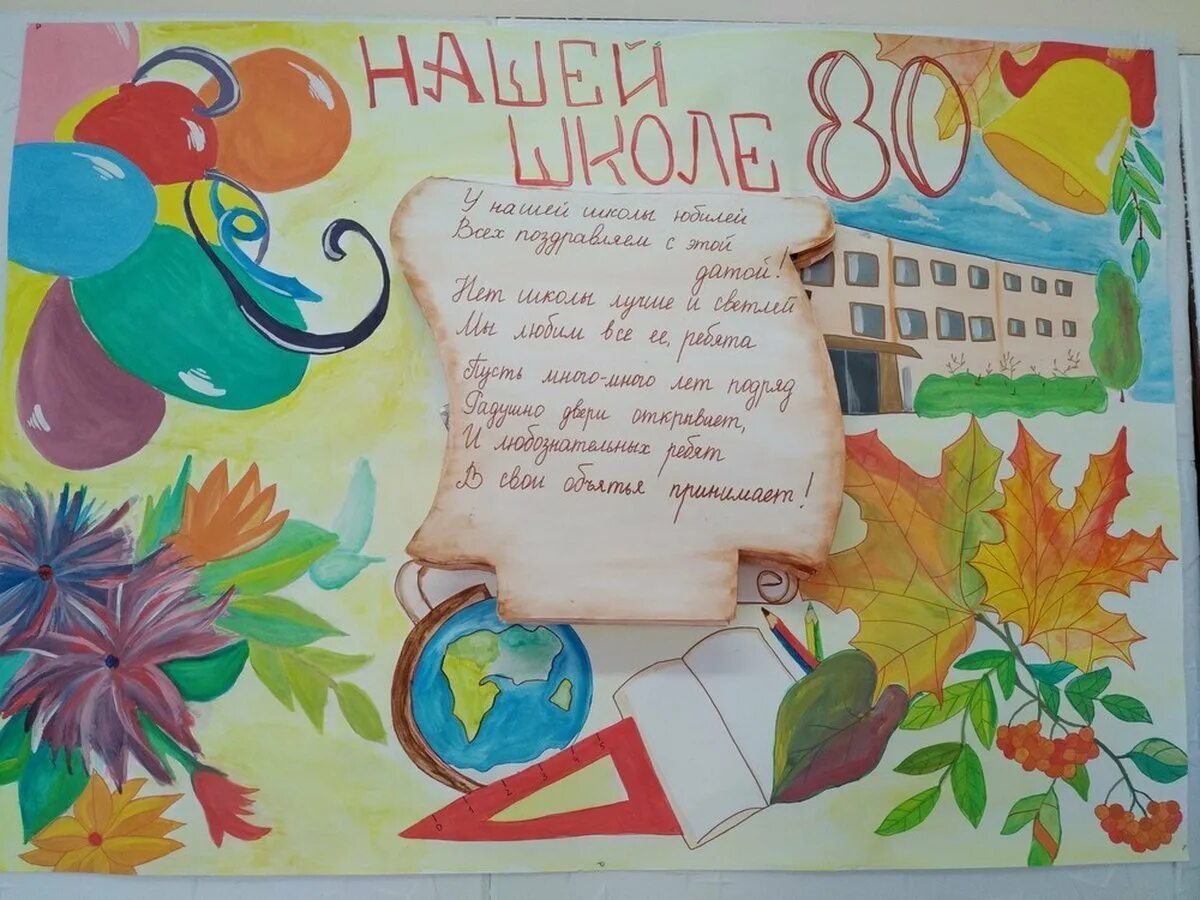 НАШЕЙ
ШКОЛЕ 80
У нашей школы юбилей
Всех поздравляем с этой
датой!
Нет школы лучше и светлей
Мы любим все ее, ребята
Пусть много-много лет подряд
Радушно двери открывает,
И любознательных ребят
В свои объятья принимает!
0 1 2 3 4 5